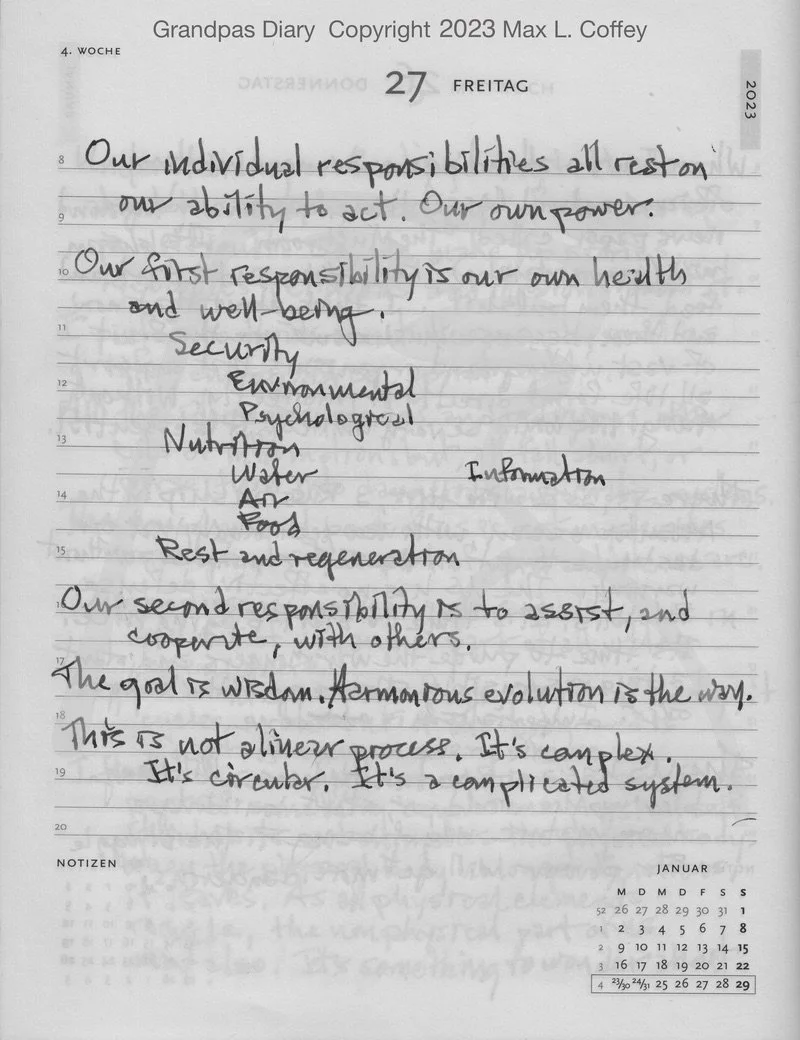 Grandpas Diary Copyright 2023 Max L. Coffey
4. WOCHE
27 FREITAG
2023
8 Our individual responsibilities all rest on
our ability to act. Our own power.
9
10 Our first responsibility is our own health
and well-being.
11
Security
12 Environmental
Psychological
13 Nutrition
Water Information
14 Air
Food
15 Rest and regeneration
Our second responsibility is to assist, and
cooperate, with others.
17
The goal is wisdom. Harmonious evolution is the way.
18
This is not a linear process. It's complex.
19 It's circular. It's a complicated system.
20
NOTIZEN
JANUAR
M D M D F S S
52 26 27 28 29 30 31 1
1 2 3 4 5 6 7 8
2 9 10 11 12 13 14 15
3 16 17 18 19 20 21 22
4 23/30 24/31 25 26 27 28 29